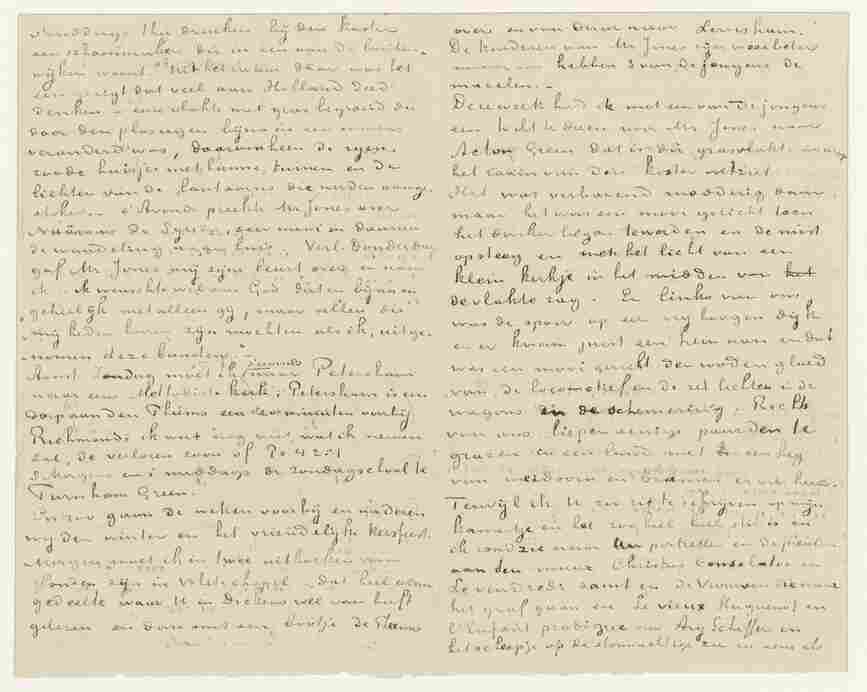 smiddags thee drinken bij den koster
een schoenmaker die in een van de buiten-
wijken woont. Uit het raam daar was het
een gezigt dat veel aan Holland deed
denken – eene vlakte met gras begroeid die
door den plasregen bijna in een moeras
veranderd was, daaromheen de rijen
roode huisjes met hunne tuinen en de
lichten van de lantaarns die werden aange-
stoken. – s'Avonds preekte Mr Jones over
Naäman de Syriër, zeer mooi en daarna
de wandeling naar huis. Verl. Donderdag
gaf Mr Jones mij zijn beurt over en nam
ik „Ik wenschte wel van God, dat en bijna en
geheellijk niet alleen gij, maar allen die
mij heden hooren zijn mochten als ik, uitge-
nomen deze banden."
Aanst. Zondag moet ik 's avonds naar Petersham
naar een Methodiste kerk; Petersham is een
dorp aan den Theems een 20 minuten voorbij
Richmond; ik weet nog niet wat ik nemen
zal, de verloren zoon of Ps 42:1
s'Morgens en s'middags de zondagschool te
Turnham Green.
En zoo gaan de weken voorbij en naderen
wij den winter en het vriendelijke Kersfeest.
Morgen moet ik in twee uithoeken van
Londen zijn in Whitechapel – dat heel arme
gedeelte waar U in Dickens wel van heeft
gelezen en dan met een bootje de Theems
over en van daar naar Lewisham.
De kinderen van Mr Jones zijn weer beter
maar nu hebben 3 van de jongens de
mazelen. –
Deze week had ik met een van de jongens
een tocht te doen voor Mr Jones naar
Acton Green dat is die grasvlakte waarop
het raam van den koster uitziet.
Het was verbazend modderig daar,
maar het was een mooi gezicht toen
het donker begon te worden en de mist
opsteeg en men het licht van een
klein kerkje in het midden van
de vlakte zag. En links van ons
was de spoor op een vrij hoogen dijk
en er kwam juist een trein aan en dat
was een mooi gezicht den rooden gloed
van de locomotief en de rei lichten in de
wagons in de schemering. Rechts
van ons liepen eenige paarden te
grazen in een land met een heg
van meidoorn en bramen er om heen.
Terwijl ik U zoo zit te schrijven op mijn
kamertje en het zoo heel heel stil is en
ik rond zie naar Uw portretten en de prenten
aan den muur Christus Consolator en
Le vendredi saint en de Vrouwen die naar
het graf gaan en Le vieux Huguenot en
L'enfant prodigue van Ary Scheffer en
het scheepje op de stormachtige zee en eene ets